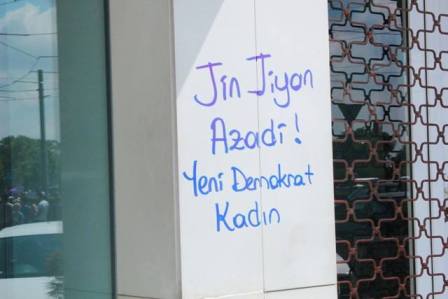 Jin Jiyan
Azadî!
Yeni Demokrat
Kadın